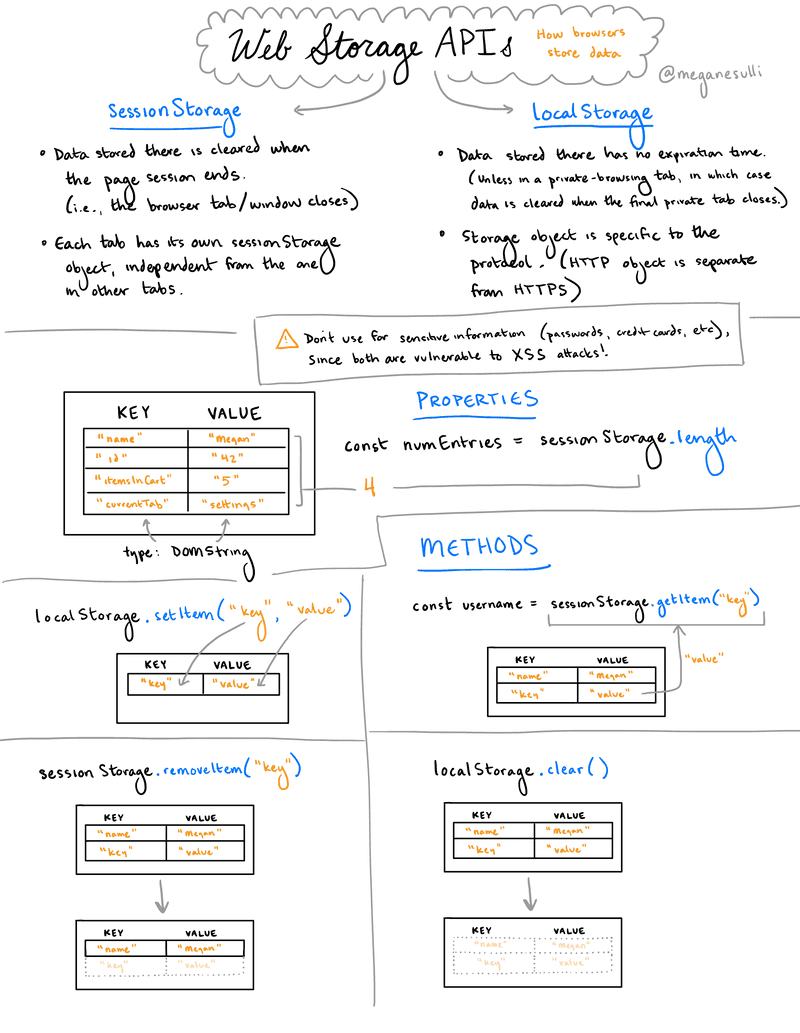 Web Storage APIs
How browsers
store data
@meganesulli
sessionStorage
• Data stored there is cleared when
the page session ends.
(i.e., the browser tab/window closes)
• Each tab has its own sessionStorage
object, independent from the one
in other tabs.
localStorage
• Data stored there has no expiration time.
(Unless in a private-browsing tab, in which case
data is cleared when the final private tab closes.)
• Storage object is specific to the
protocol. (HTTP object is separate
from HTTPS)
⚠ Don't use for sensitive information (passwords, credit cards, etc),
since both are vulnerable to XSS attacks!
KEY VALUE
"name" "megan"
"id" "42"
"itemsInCart" "5"
"currentTab" "settings"
type: DOMString
PROPERTIES
const numEntries = sessionStorage.length
4
METHODS
localStorage.setItem("key", "value")
KEY VALUE
"key" "value"
const username = sessionStorage.getItem("key")
"value"
KEY VALUE
"name" "megan"
"key" "value"
sessionStorage.removeItem("key")
KEY VALUE
"name" "megan"
"key" "value"
KEY VALUE
"name" "megan"
"key" "value"
localStorage.clear()
KEY VALUE
"name" "megan"
"key" "value"
KEY VALUE
"name" "megan"
"key" "value"